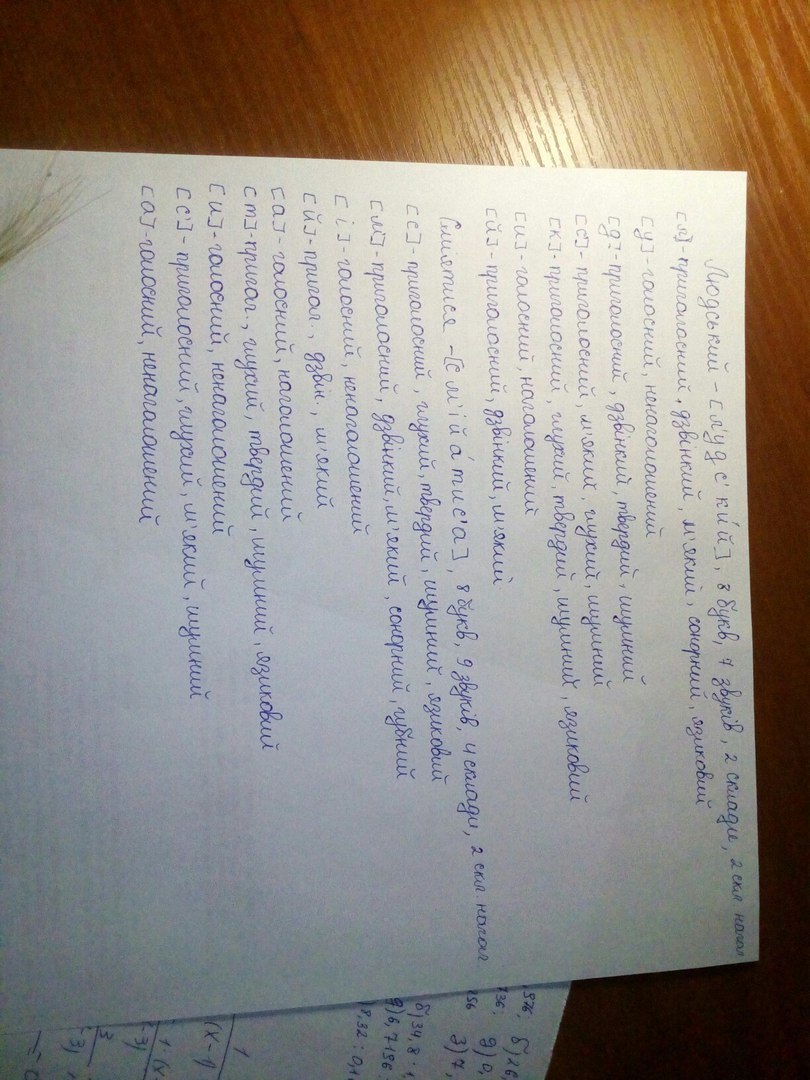 Людський - [л'удс'ки́й], 8 букв, 7 звуків, 2 склади, 2 скл нагол
[л'] - приголосний, дзвінкий, м'який, сонорний, язиковий
[у] - голосний, ненаголошений
[д] - приголосний, дзвінкий, твердий, шумний
[с'] - приголосний, м'який, глухий, шумний
[к] - приголосний, глухий, твердий, шумний, язиковий
[и] - голосний, наголошений
[й] - приголосний, дзвінкий, м'який
Сміятися - [см'ійа́тис'а], 8 букв, 9 звуків, 4 склади, 2 скл нагол
[с] - приголосний, глухий, твердий, шумний, язиковий
[м'] - приголосний, дзвінкий, м'який, сонорний, губний
[і] - голосний, ненаголошений
[й] - пригол., дзвін., м'який
[а] - голосний, наголошений
[т] - пригол., глухий, твердий, шумний, язиковий
[и] - голосний, ненаголошений
[с'] - приголосний, глухий, м'який, шумний
[а] - голосний, ненаголошений